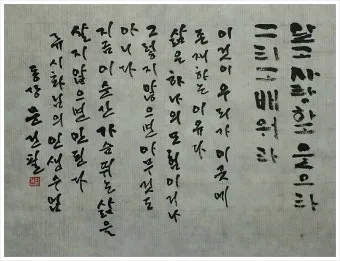 살고 사랑하고 웃으라
그리고 배워라
이것이 우리가 이곳에
존재하는 이유다
삶은 하나의 모험이거나
그렇지 않으면 아무것도
아니다
지금 이 순간 가슴 뛰는 삶을
살지 않으면 안된다
류시화님의 인생수업